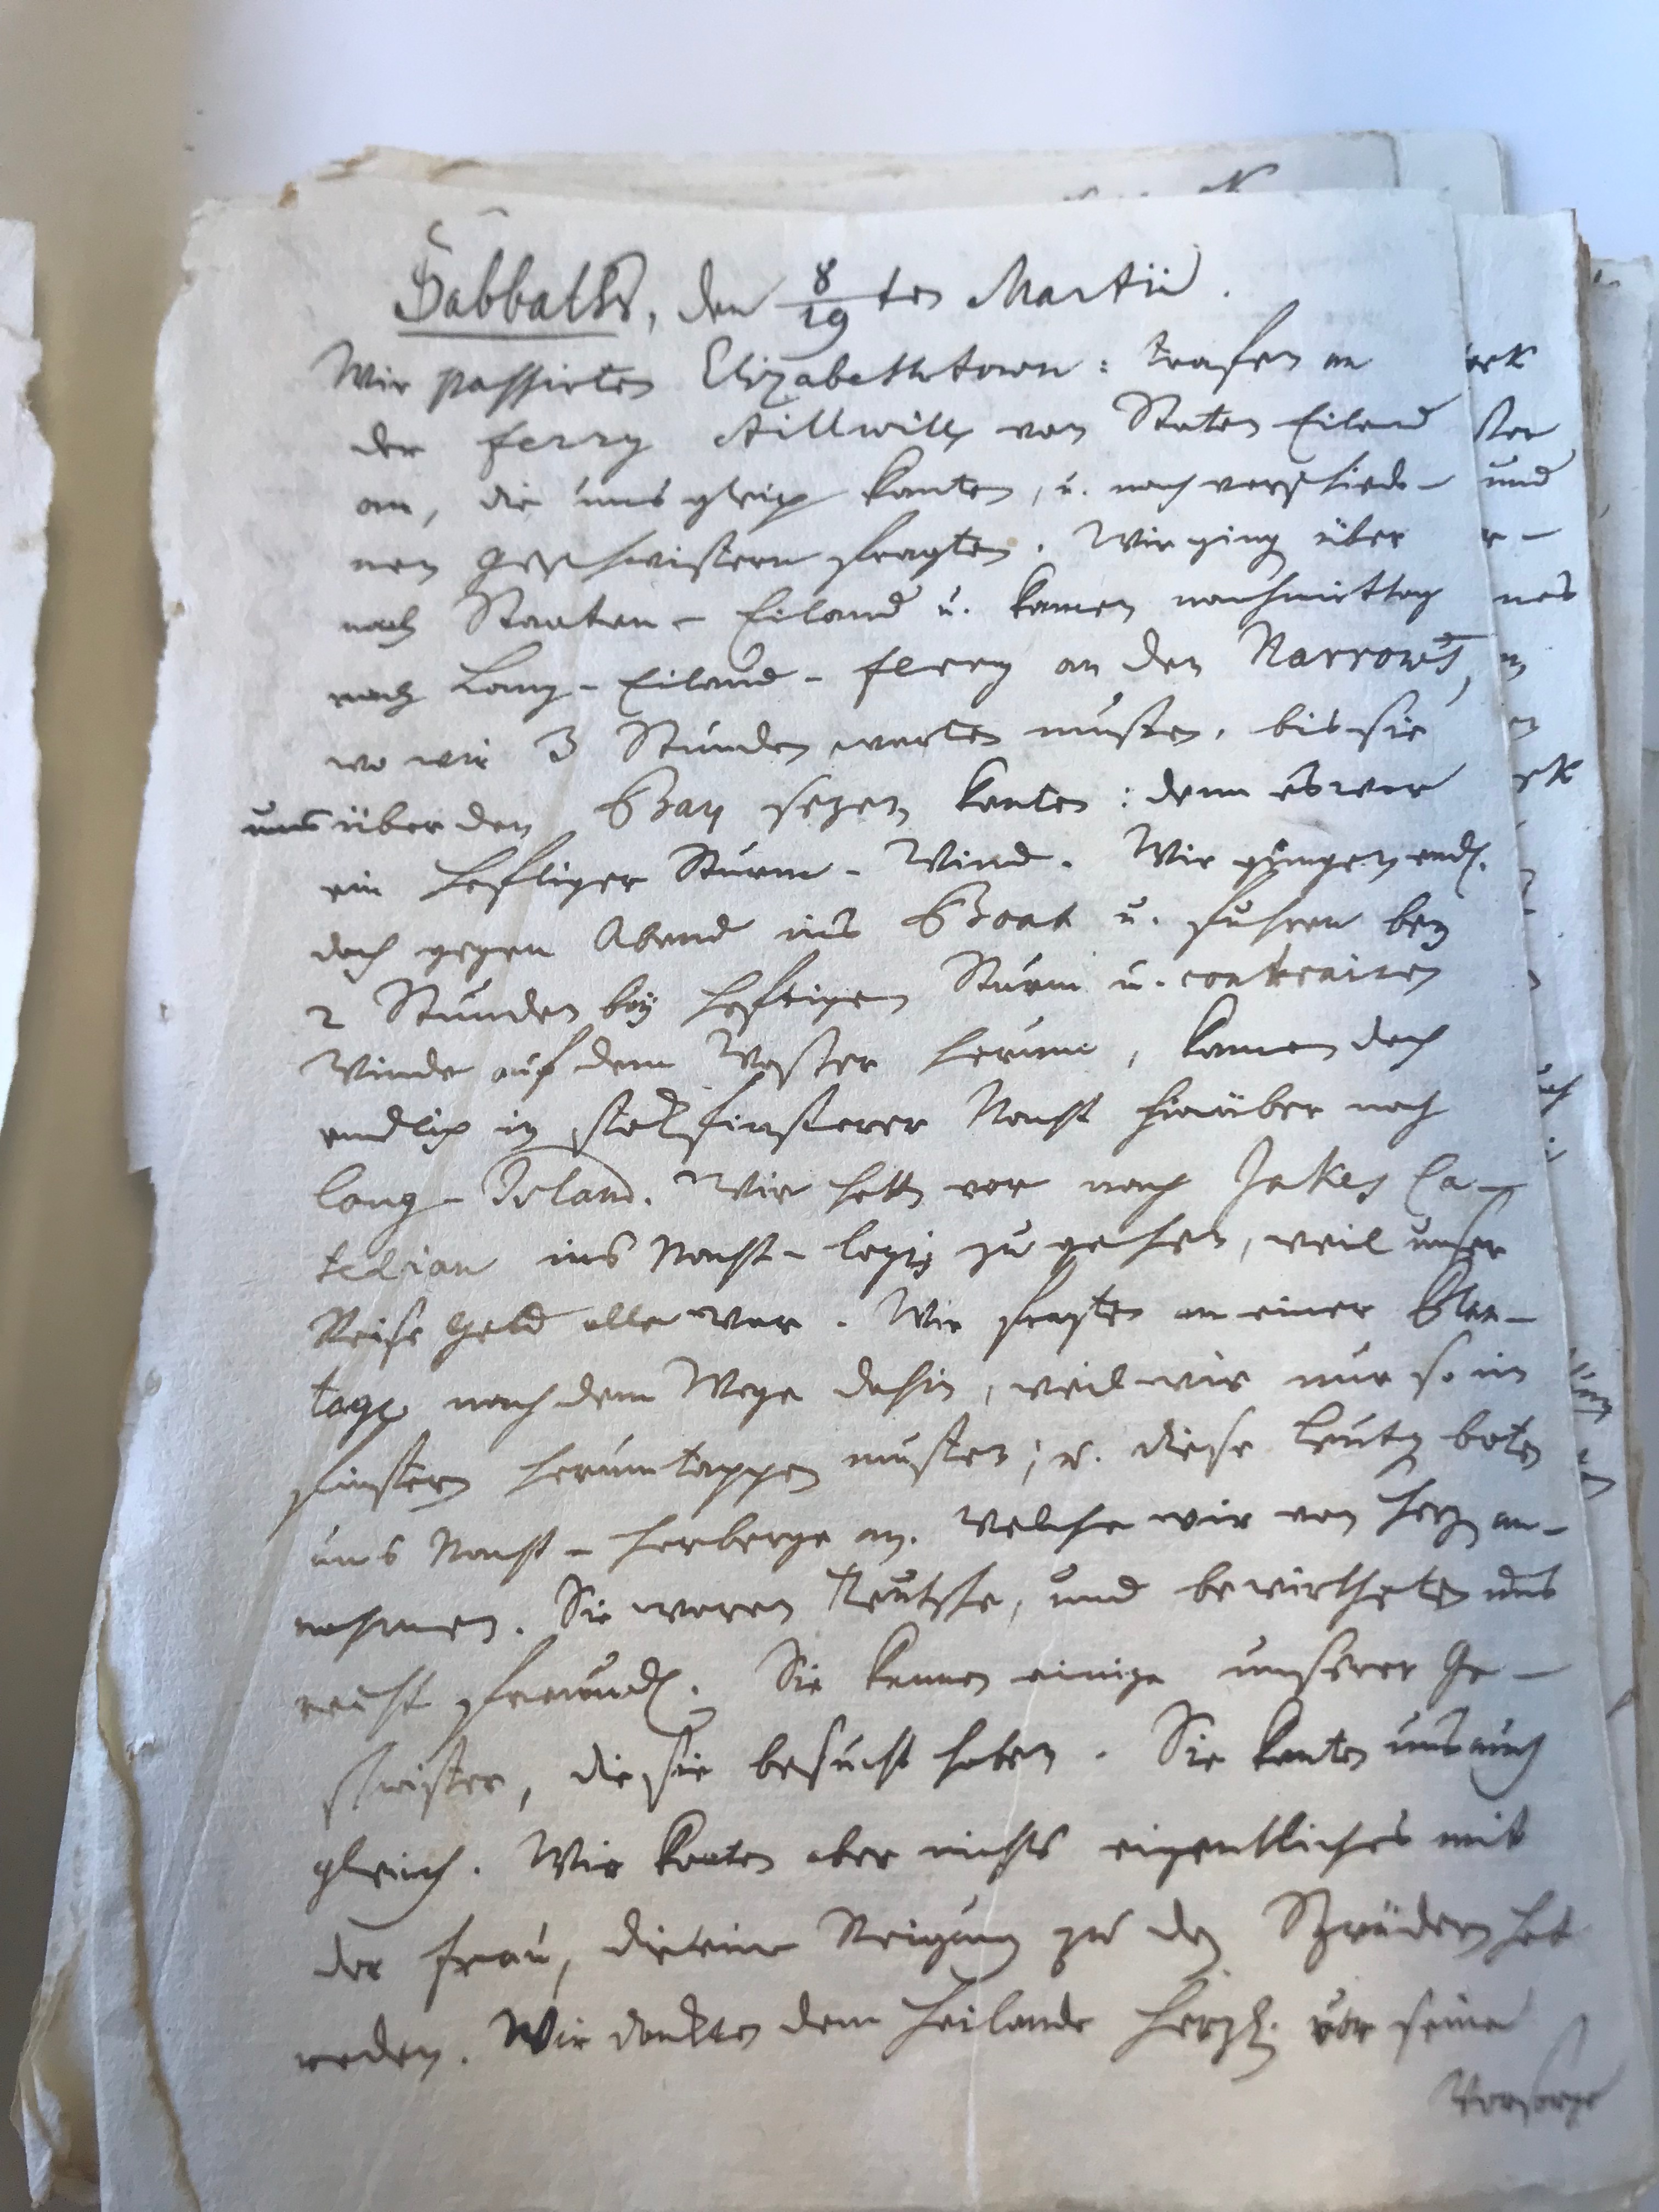 Sabbaths, den 8/19ten Martii.
Wir passirten Elizabethtown: trafen an
der Ferry Stillwills von Staten Eiland
an, die uns gleich kanten, u. nach verschiede-
nen Geschwistern fragten. Wir ging über
nach Staaten-Eiland u. kamen nachmittag
nach Lang-Eiland-ferry an den Narrows,
wo wir 3 Stunden warten musten, bis sie
uns über den Bay sezen konten: denn es war
ein heftiger Sturm-Wind. Wir gingen endl.
doch gegen Abend ins Boat u. fuhren bey
2 Stunden bey heftigen Sturm u. contrairen
Winde auf dem Wasser herum, kamen doch
endlich in stokfinsterer Nacht hinüber nach
Long-Island. Wir hattn vor nach Jakes Ca-
teljau ins Nacht-logis zu gehen, weil unser
Reise Geld alle war. Wir fragten an einer Plan-
tage nach dem Wege dahin, weil wir nur so im
finstern herumtappen musten; u. diese Leute boten
uns Nacht-herberge an. Welche wir von Herzn an-
nahmen. Sie waren Teutsche, und bewirtheten uns
recht freundl. Sie kennen einige unserer Ge-
schwister, die sie besucht haben. Sie kanten uns auch
gleich. Wir konten aber nichts eigentliches mit
der Frau, die eine Neigung zu den Brüdern hat
reden. Wir dankten dem Heilande herzl. vor seine
Vorsorge
ork
ster
und
r-
nes
n
en
rk